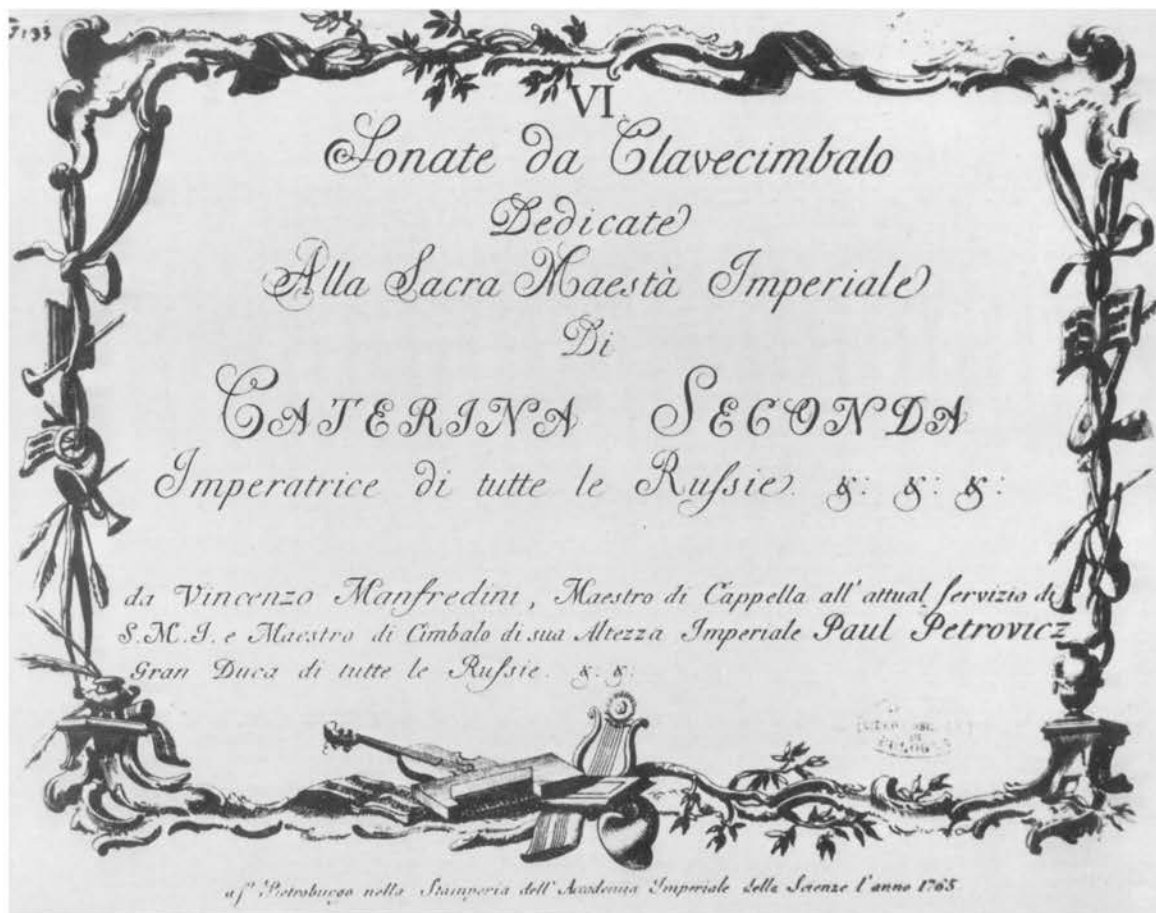 7133
VI
Sonate da Clavecimbalo
Dedicate
Alla Sacra Maestà Imperiale
Di
CATERINA SECONDA
Imperatrice di tutte le Russie. &: &: &:
da Vincenzo Manfredini, Maestro di Cappella all' attual servizio di
S.M.I. e Maestro di Cimbalo di sua Altezza Imperiale Paul Petrovicz
Gran Duca di tutte le Russie. &: &:
a sn. Pietroburgo nella Stamperia dell' Accademia Imperiale della Scienze l'anno 1765